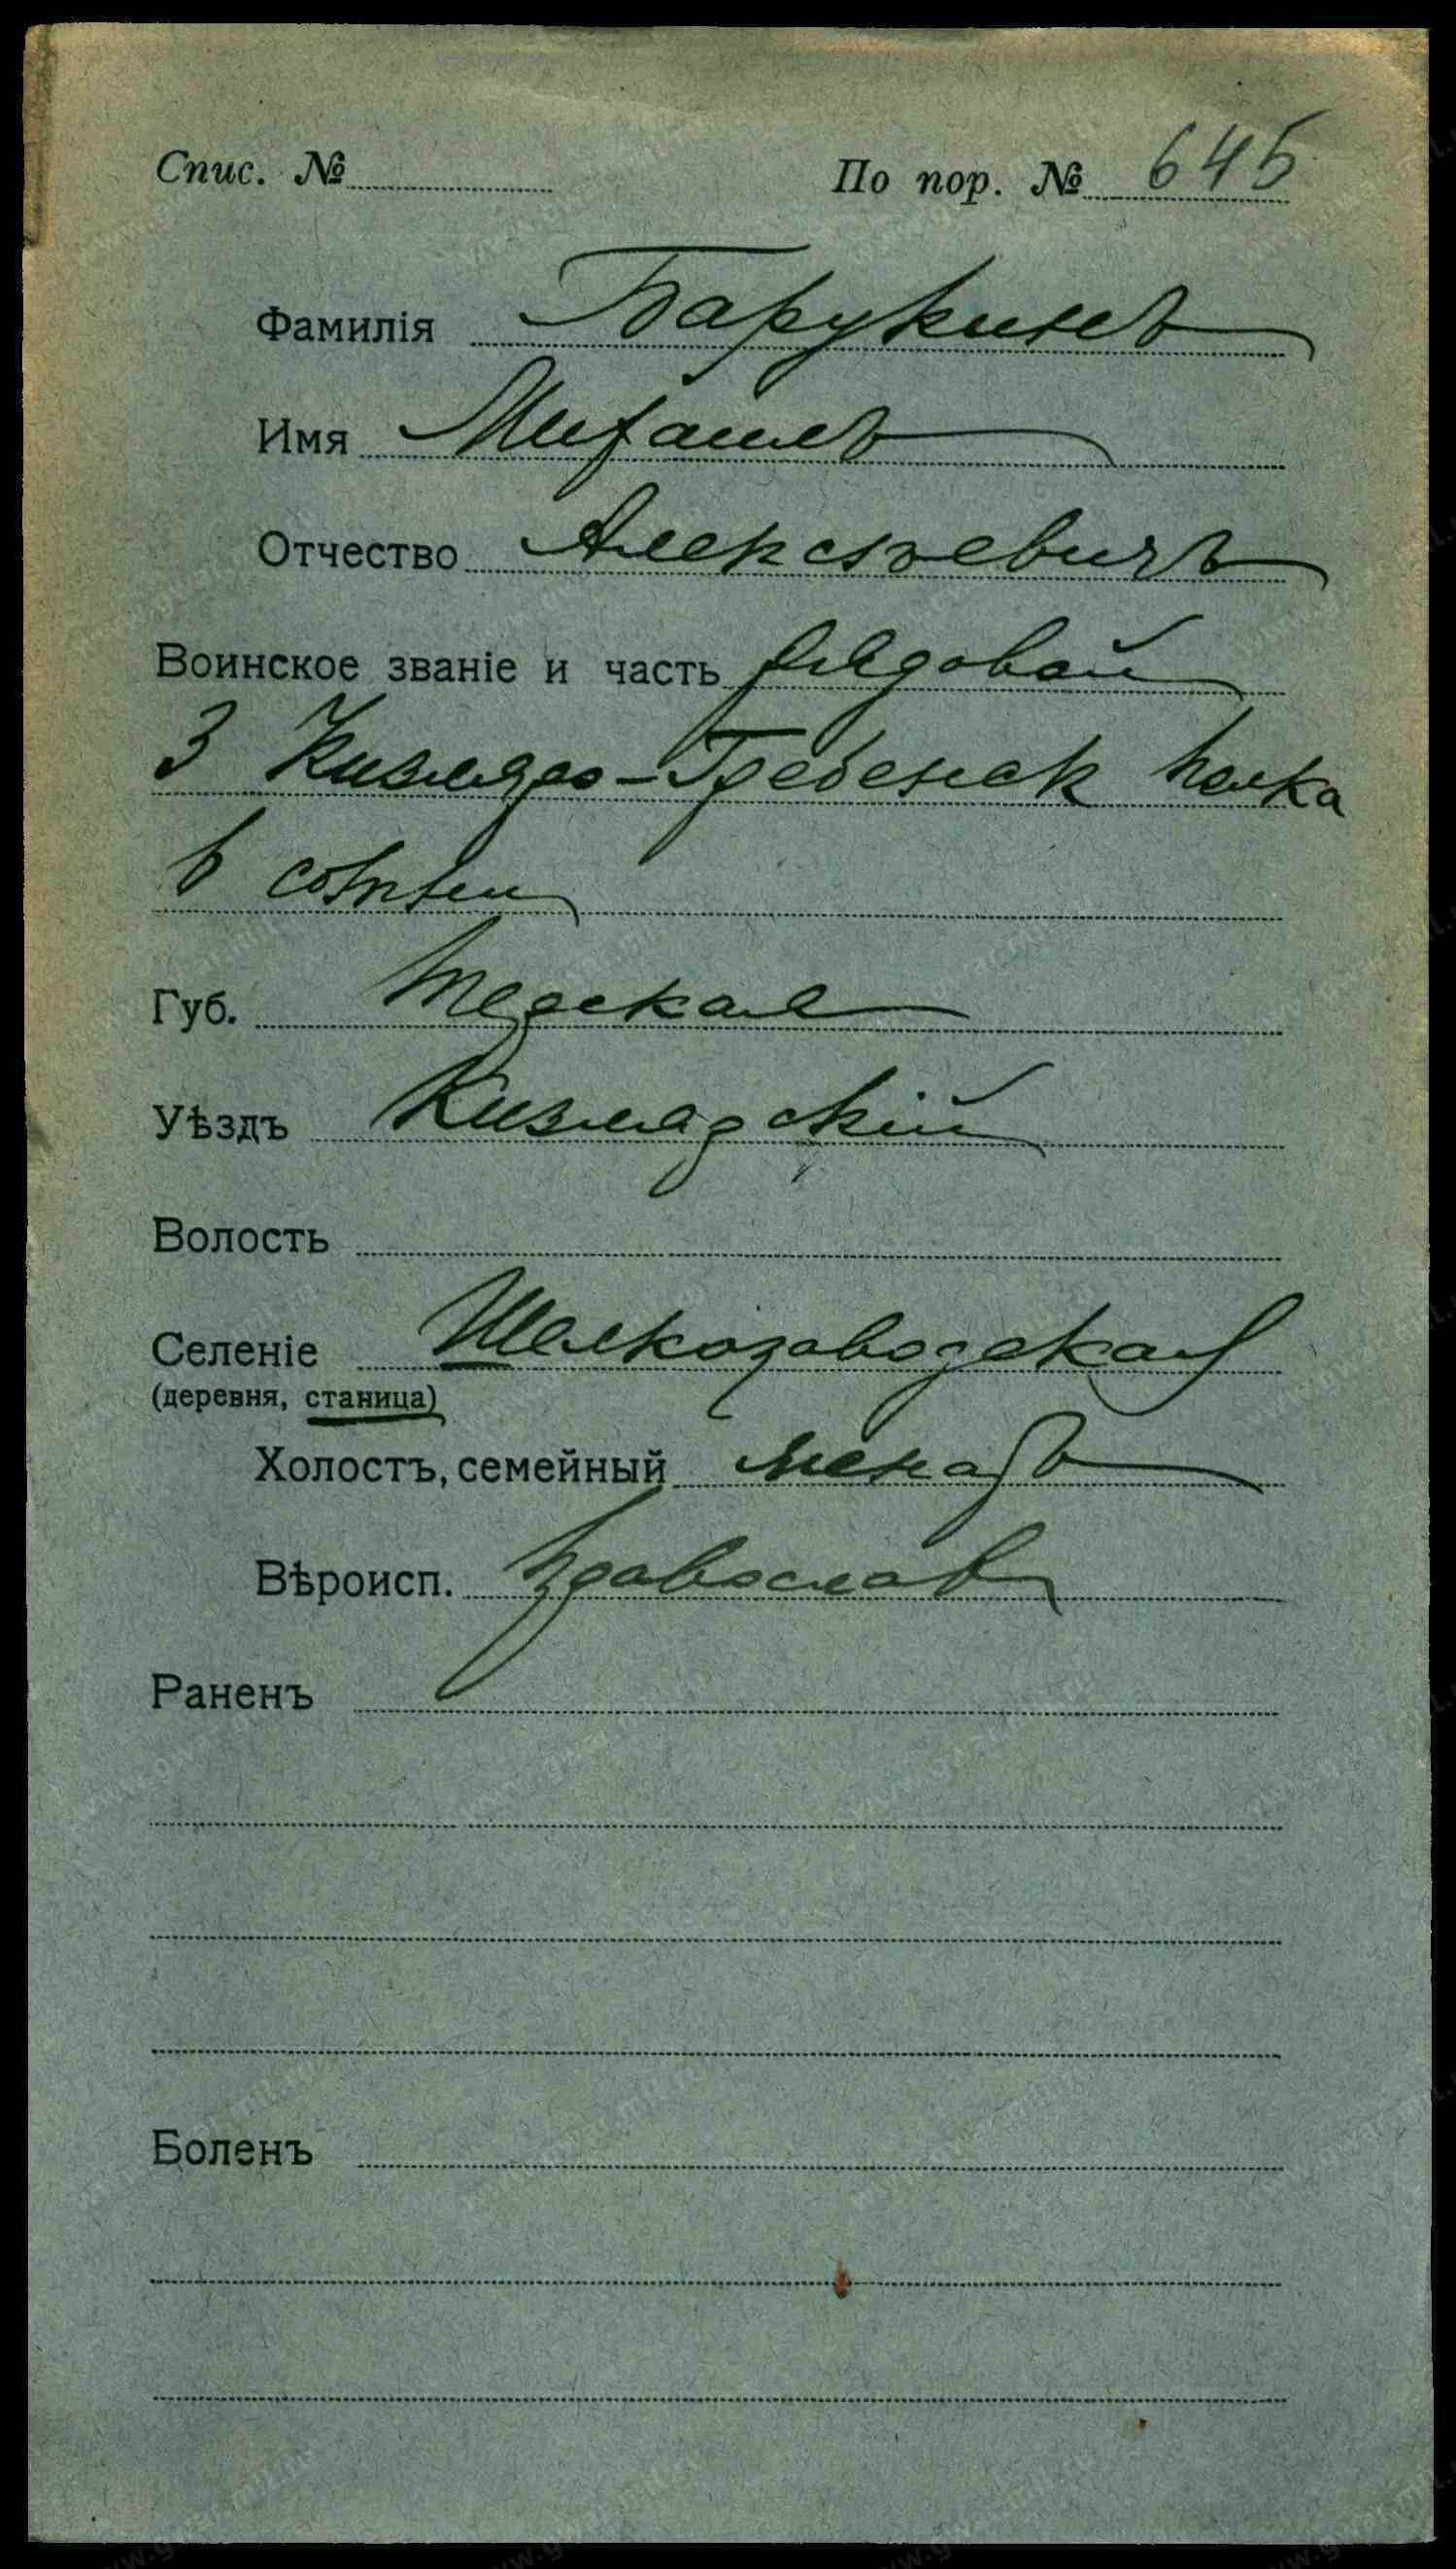 Спис. № По пор. № 645
Фамилія Барукинъ
Имя Михаилъ
Отчество Алексѣевичъ
Воинское званіе и часть рядовой
3 Кизляро-Гребенск полка
6 сотни
Губ. Терская
Уѣздъ Кизлярскій
Волость
Селеніе Шелкозаводская
(деревня, станица)
Холостъ, семейный женатъ
Вѣроисп. православ
Раненъ
Боленъ